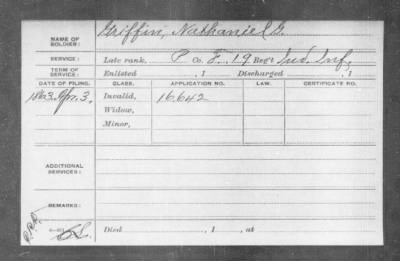 NAME OF SOLDIER: Griffin, Nathaniel G.
SERVICE: Late rank, P Co. F, 19 Reg't Ind. Inf.
TERM OF SERVICE: Enlisted , 1 Discharged , 1
DATE OF FILING. CLASS. APPLICATION NO. LAW. CERTIFICATE NO.
1863. Apr. 3. Invalid, 16.642
Widow,
Minor,
ADDITIONAL SERVICES:
REMARKS:
Died , 1 , at